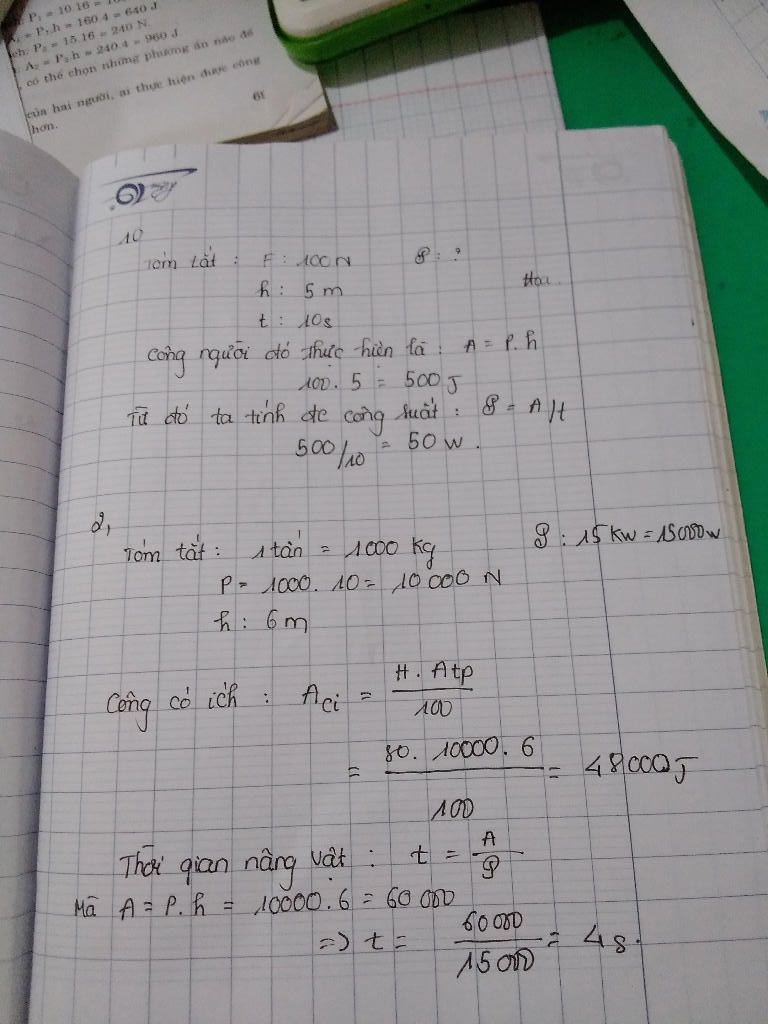 P₁ = 10.16 =
= P₁.h = 160.4 = 640 J
P₂ = 15.16 = 240 N.
A₂ = P₂.h = 240.4 = 960 J
, có thể chọn những phương án nào để
của hai người, ai thực hiện được công
hơn.
61
10
Tóm tắt : F : 100N P : ?
h : 5 m
t : 10s
Công người đó thực hiện là : A = P.h
100 . 5 = 500J
Từ đó ta tính đc công suất : P = A/t
500/10 = 50 w .
2,
Tóm tắt : 1 tấn = 1000 kg P : 15 kw = 15000w
P = 1000. 10 = 10 000 N
h : 6 m
Công có ích : Aci = H . Atp / 100
= 80. 10000. 6 / 100 = 48000J
Thời gian nâng vật : t = A / P
Mà A = P.h = 10000.6 = 60 000
=> t = 60000 / 15000 = 4s.